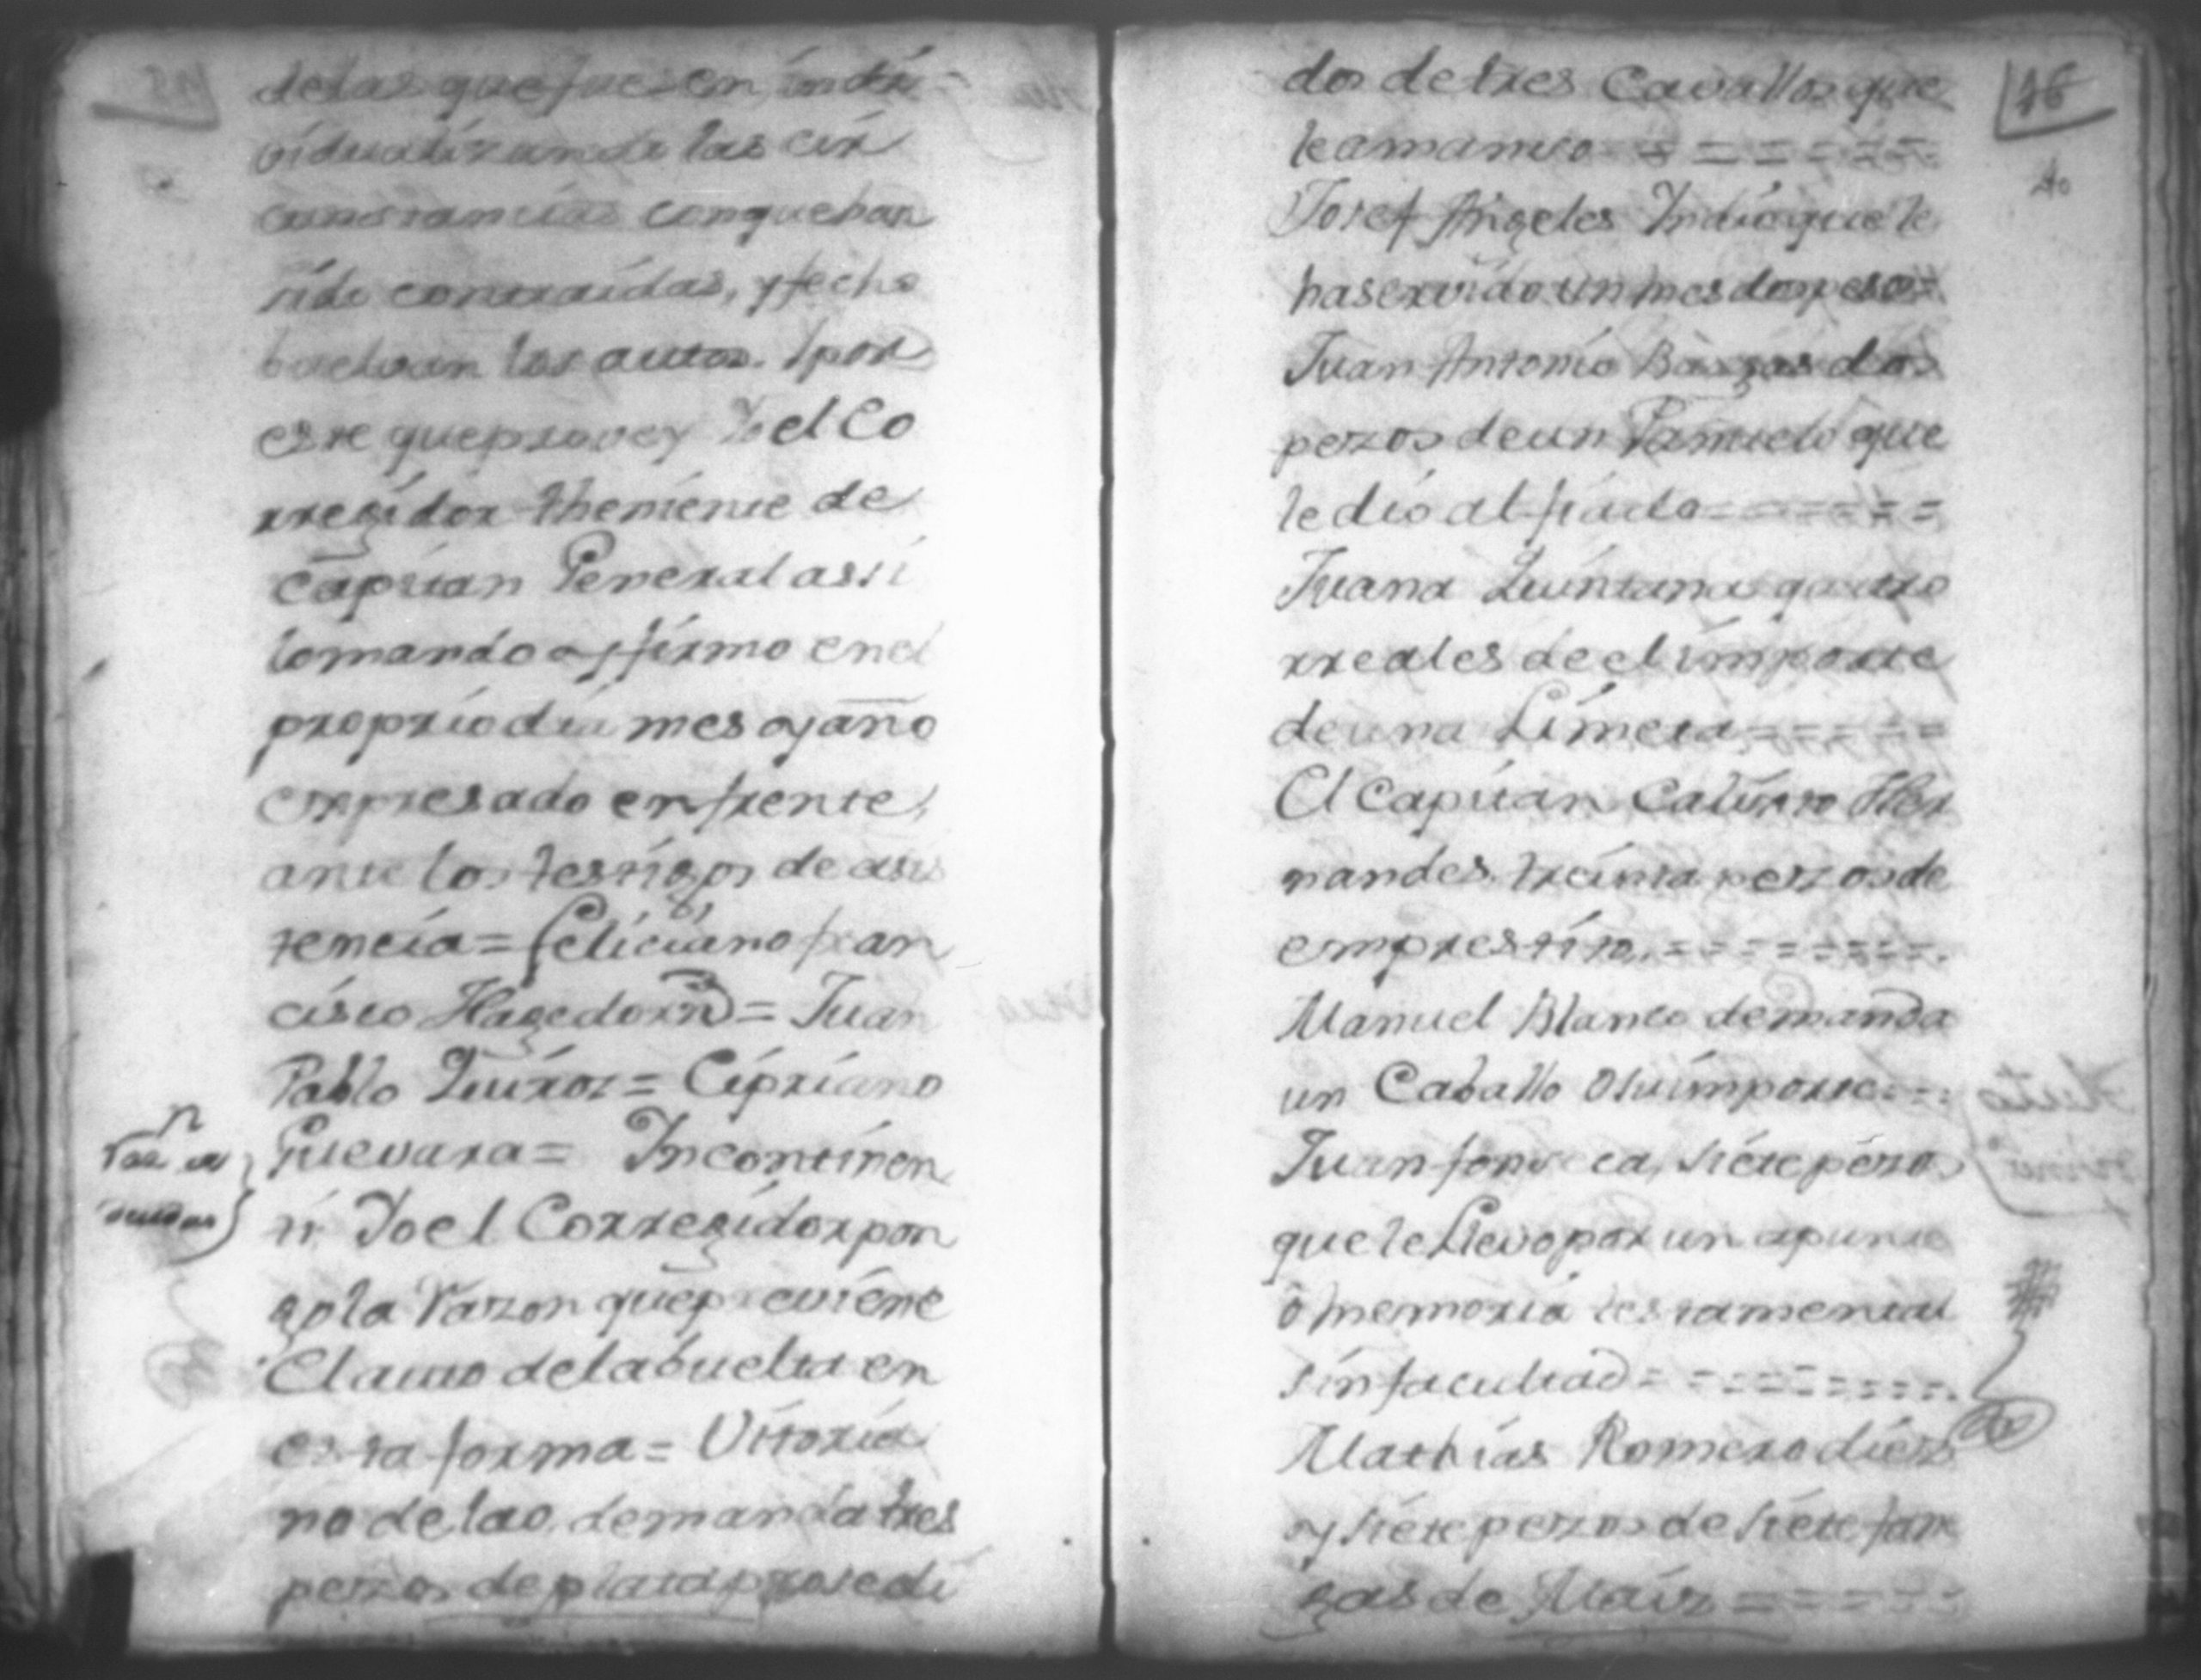 delas que fuesen indi-
vidualizando las cir
cunstancias conque han
sido contraidas, y fecho
buelvan los autos. Y por
este que provey Yo el Co
rregidor theniente de
Capitan General assi
lo mando y firmo en el
proprio dia mes y año
expresado enfrente,
ante los testigos de asis
tencia = Feliciano Fran
cisco Hagedorn = Juan
Pablo Quiros = Cipriano
Guevara = Incontinen
ti Yo el Corregidor pon
go la razon que previene
El auto de la buelta en
esta forma = Vitoria
no de lao, demanda tres
pezos de plata prosedi
deudas
dos de tres Cavallos que
le amanso = = = = = =
Josef Angeles Indio que le
ha servido un mes dos pesos =
Juan Antonio Bargas dos
pezos de un Pañuelo que
le dió al fiado = = = = = =
Juana Quintana quatro
rreales de el importe
de una Limeta = = = = =
El Capitan Calixto Her
nandes, treinta pezos de
emprestito. = = = = = = = =
Manuel Blanco demanda
un Caballo o su importe = =
Juan fonseca, siete pezos
que le Llevo por un apunte
ó memoria testamental
sin facultad = = = = = = = =
Mathias Romero diez
y siete pezos de siete fane
gas de Maiz = = = = =
46